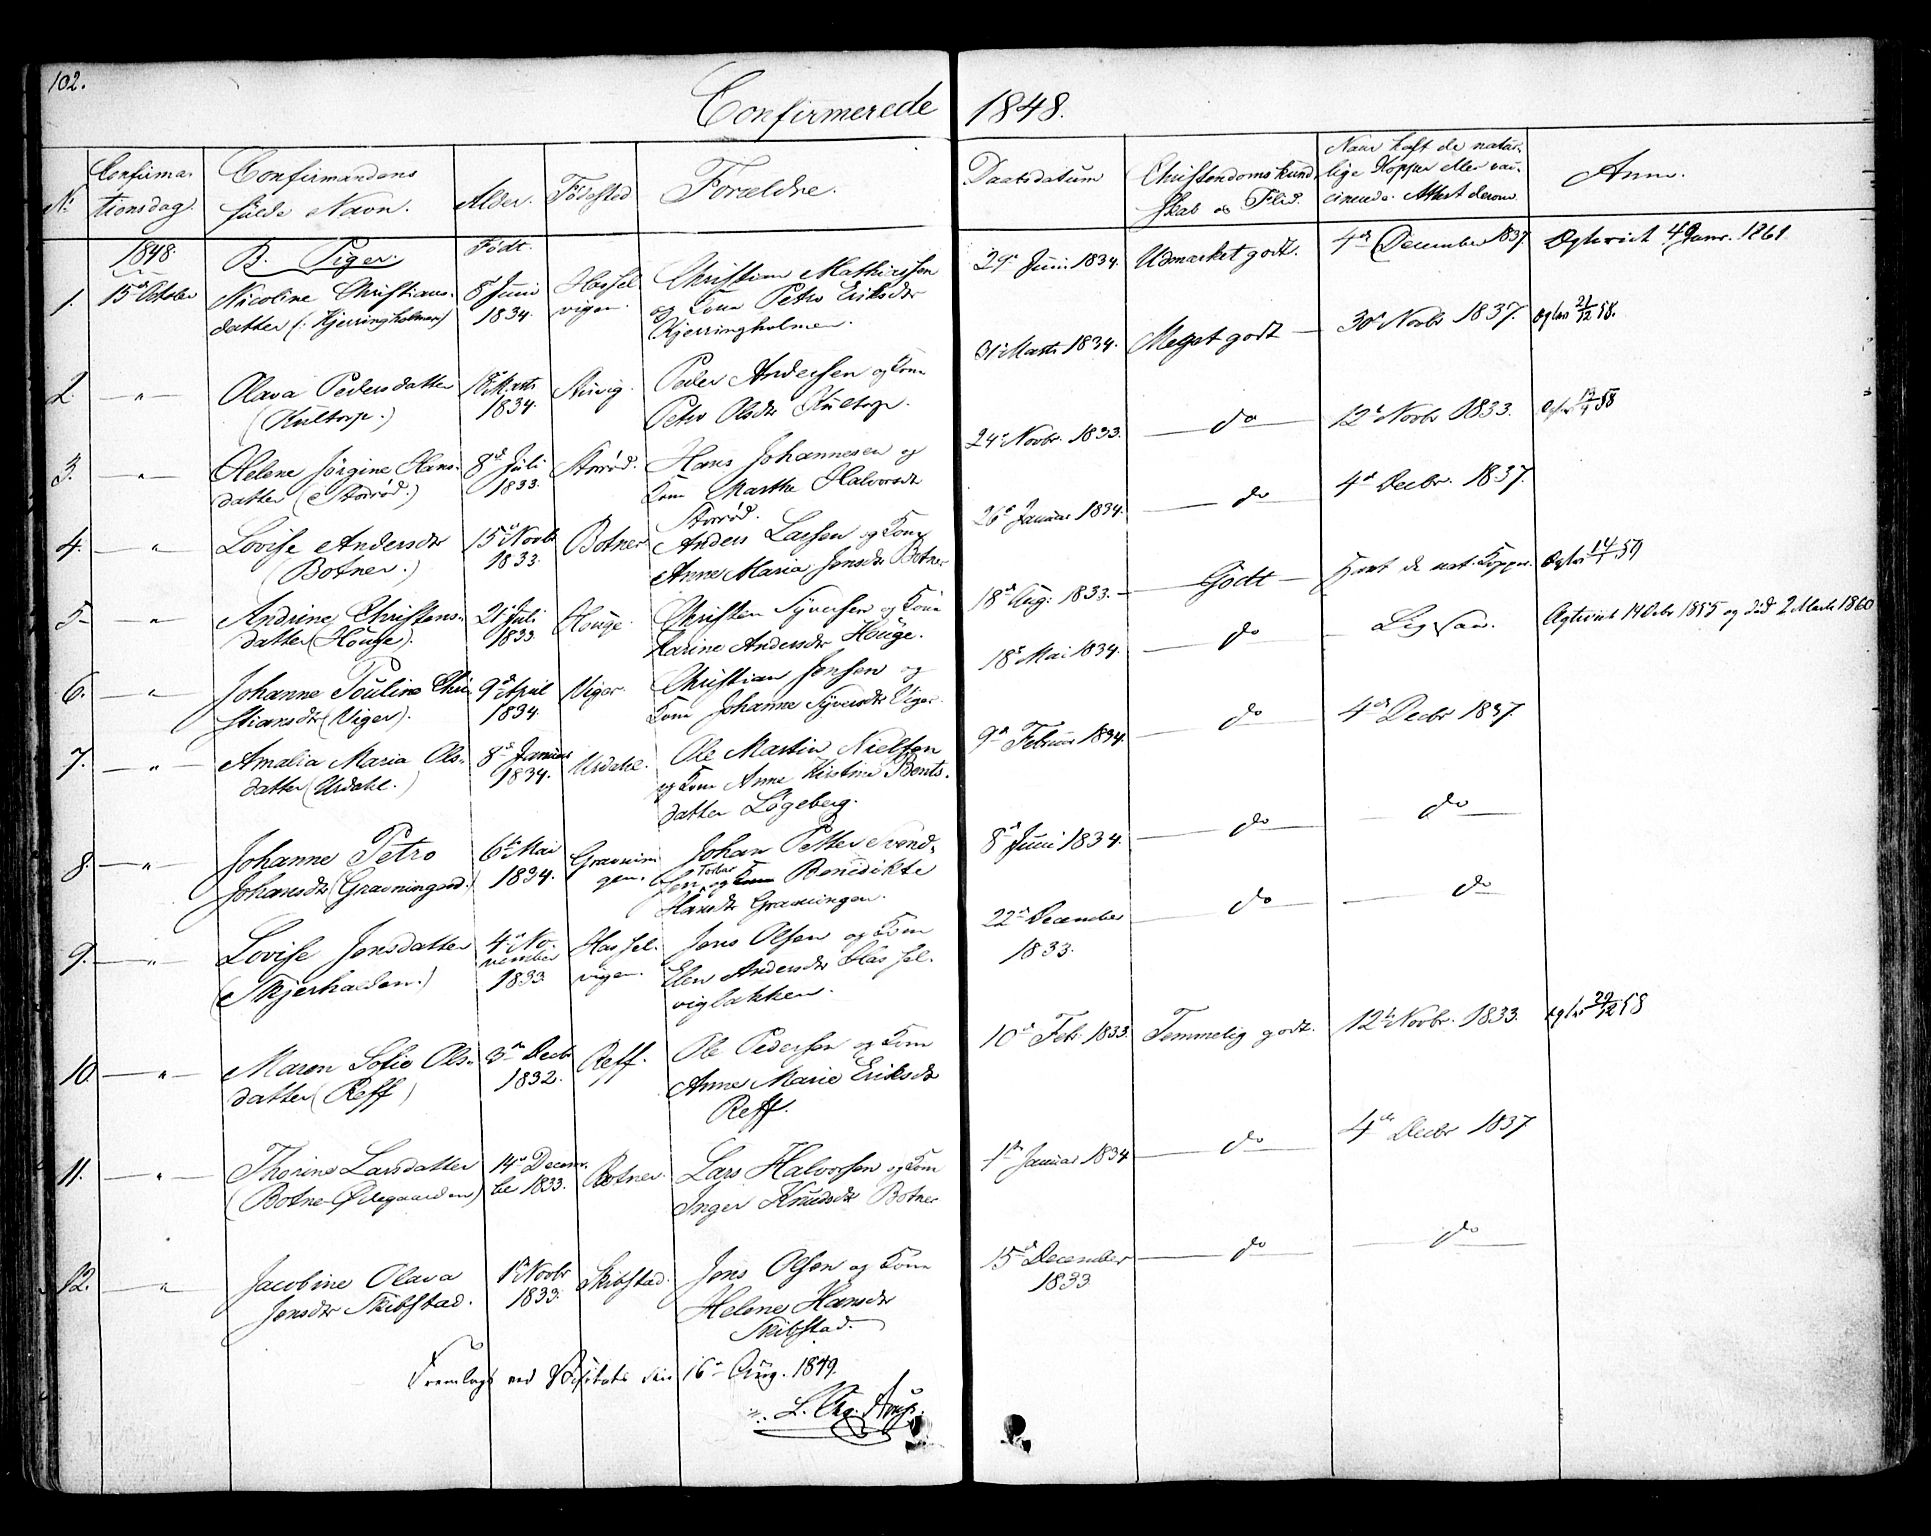 102.
Confirmerede 1848.
No
Confirma-
tionsdag.
Confirmandens
fulde Navn.
Alder.
Födested
Forældre.
Daabsdatum
Christendomskund
skab og Flid.
Naar haft de natur-
lige Kopper eller vac-
cinerede. Attest derom
Anm.
1848.
B. Piger.
Født.
1.
15de October
Nicoline Christians-
datter (: Kjerringholmen)
8de Juni
1834.
Hassel
vigen.
Christian Mathiessen
og Kone Petro Eriksdr
Kjerringholmen.
29de Juni 1834.
Udmærket godt.
4de December 1837.
1861
2.
— " —
Olava Pedersdatter
(Kultorp.)
18de Marts
1834.
Peder Andersen og Kone
Petro Olsdr Kultorp.
31te Marts 1834.
Meget godt —
30te Novbr 1837.
21/12 58.
3.
— " —
Helene Jørgine Hans-
datter (Storrød.)
8de Juli
1833.
Storrød.
Hans Johannesen og
Kone Marthe Halvorsdr
Storrød.
24de Novbr. 1833.
— do —
12te Novbr 1833.
58
4.
— " —
Lovise Andersdr
(Botner.)
15de Novbr
1833.
Botner
Anders Larsen og Kone
Anne Maria Jensdr Botner
26de Januar 1834.
— do —
4de Decbr. 1837.
5
— " —
Andrine Christens-
datter (Houge).
21de Juli
1833
Houge.
Christen Syversen og Kone
Karine Andersdr Houge.
18de Aug. 1833. —
Godt —
Havt de nat. Kopper.
14/1 59
6.
— " —
Johanne Pouline Chri
stiansdr (Viger).
9de April
1834.
Viger.
Christian Jensen og
Kone Johanne Syversdr Viger.
18de Mai 1834.
— do
Ligesaa.
1855 og død 2 Marts 1860
7.
— " —
Amalia Maria Ols-
datter (Urdahl.)
8de Januar
1834.
Urdahl.
Ole Martin Nielsen
og Kone Anne Kirstine Bents-
datter Løgeberg.
9de Februar 1834.
— do —
4de Decbr 1837.
8.
— " —
Johanne Petro
Johansdr (Gravningsrd.)
6te Mai
1834.
Gravnin
gen.
Johan Petter Svend-
sen og Benedikte
Hansdr Gravningen.
8de Juni 1834.
— do —
— do —
9.
— " —
Lovise Jensdatter
(Skjerhalden.)
4de No-
vember
1833
Hassel-
vigen.
Jens Olsen og Kone
Elen Andersdr Hassel-
vigbakken.
22de December
1833.
— do —
— do
10.
— " —
Maren Sofie Ols-
datter (Reff)
3de Decbr
1832.
Reff.
Ole Pedersen og Kone
Anne Marie Eriksdr
Reff.
10de Feb. 1833.
Temmelig godt.
12te Novbr. 1833.
58
11.
— " —
Thorine Larsdatter
(Botne-Ødegaarden)
14de Decem-
ber 1833.
Botner.
Lars Halvorsen og Kone
Inger Knudsdr Botner
1ste Januar 1834
— do —
4de Decbr 1837
12.
— " —
Jacobine Olava
Jensdr Skibstad.
1ste Novbr
1833.
Skibstad.
Jens Olsen og Kone
Helene Hansdr
Skibstad.
15de December
1833.
— do —
— do —
Fremlagt ved Visitats den 16de Aug. 1849.